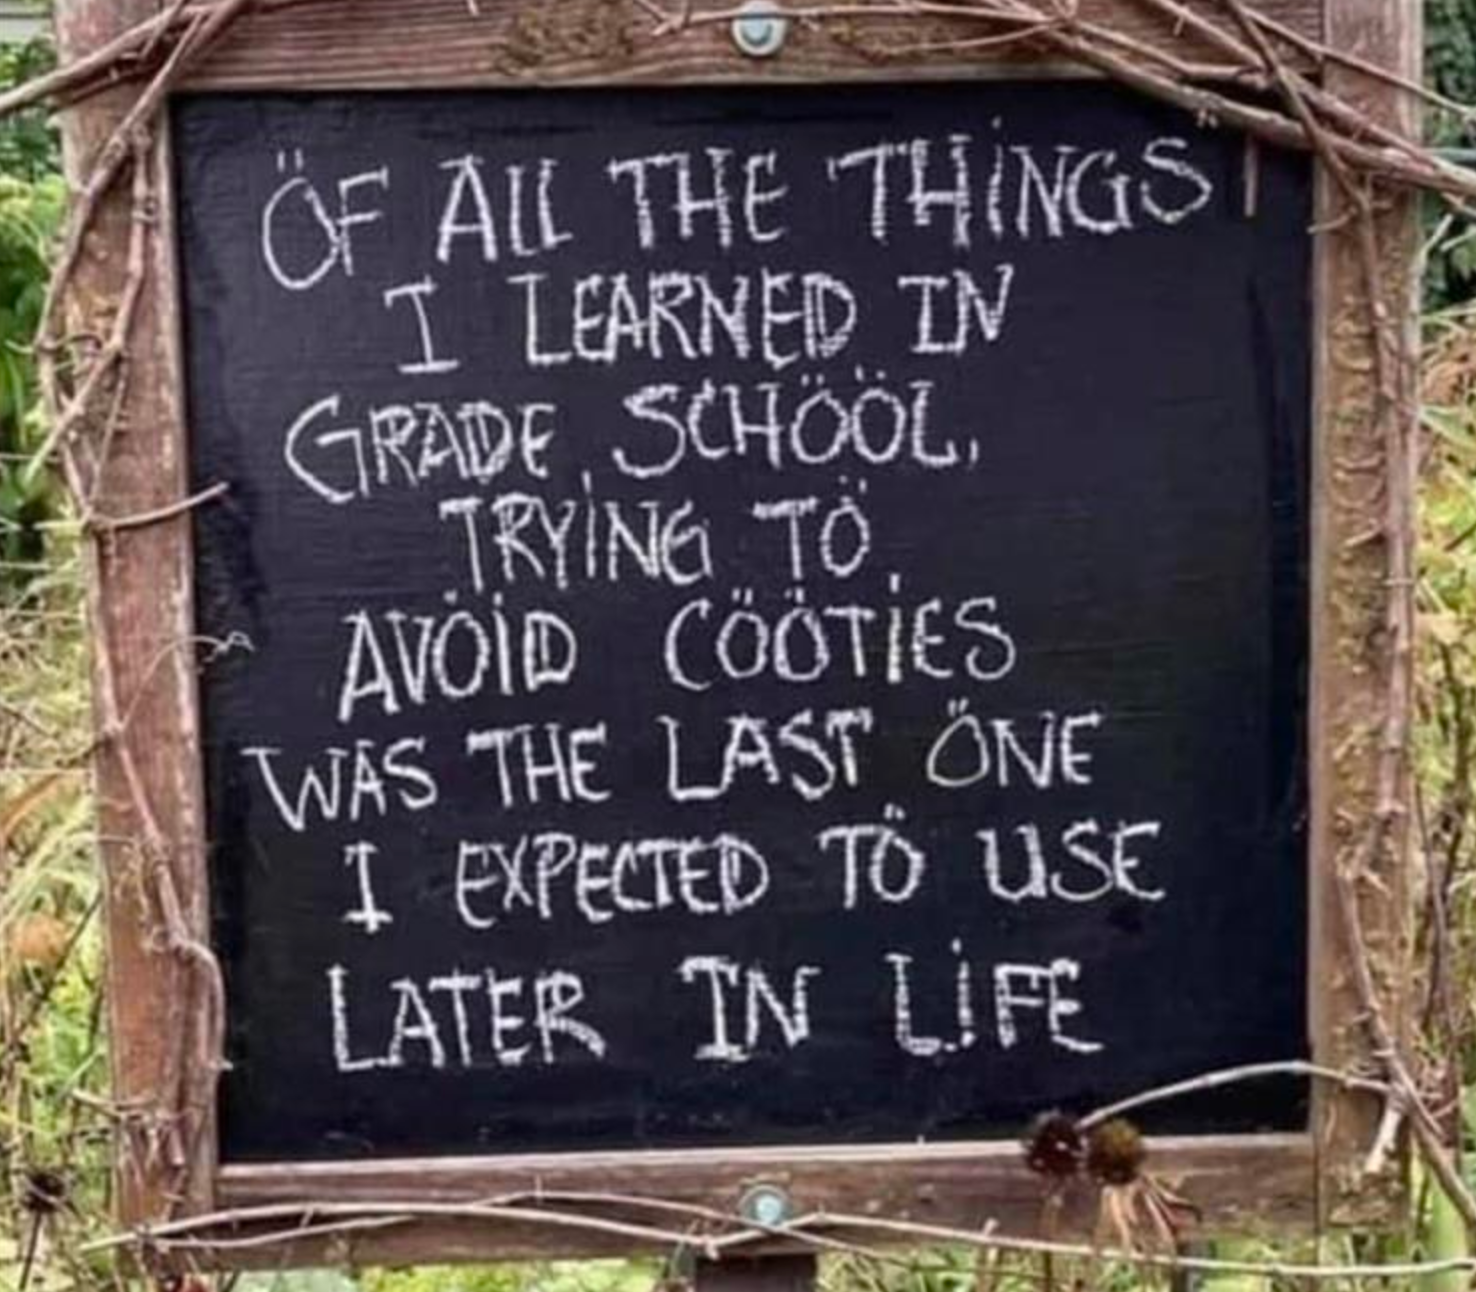 ÖF ALL THE THiNGS
I LEARNED IN
GRADE SCHÖÖL,
TRYiNG TÖ
AVÖiD CÖÖTiES
WAS THE LAST ÖNE
I EXPECTED TÖ USE
LATER IN LiFE